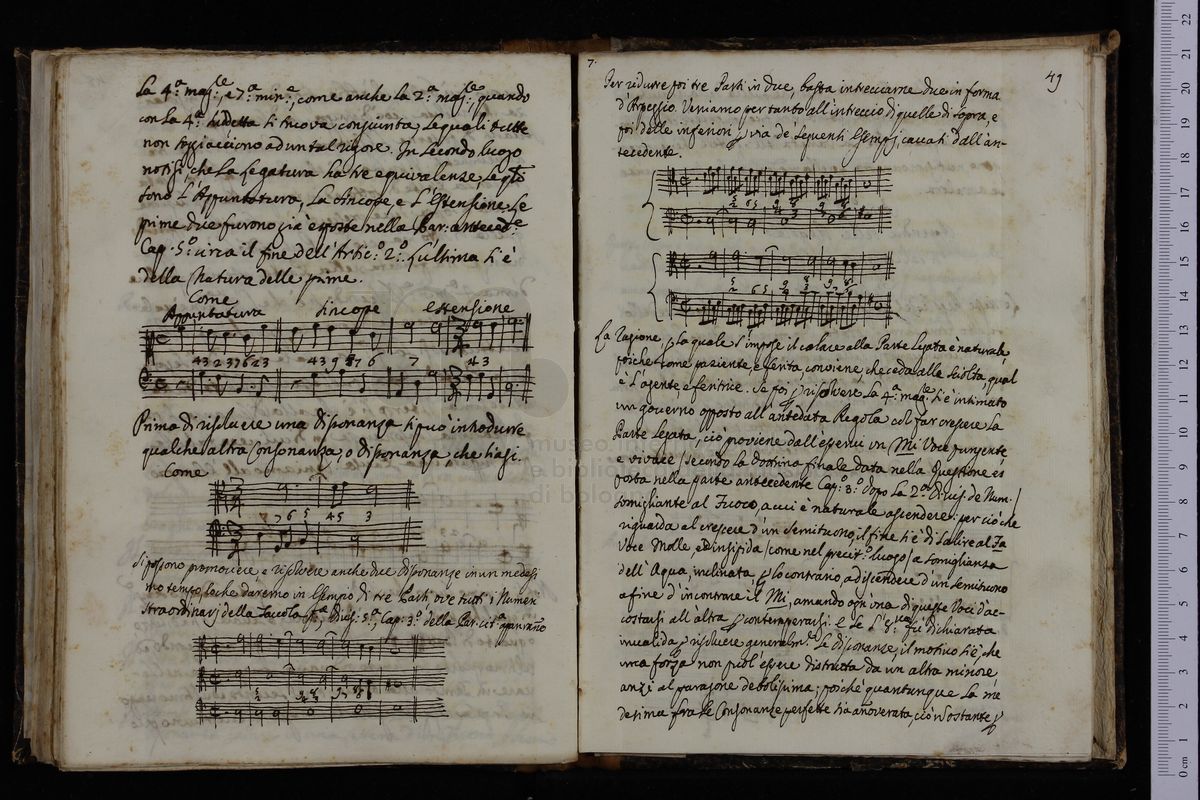 La 4.ª mag.re, e 7.ª min.e, come anche la 2.ª mag.re, quando
con la 4.ª sudetta si truova conjunta, le quali tutte
non soggiacciono ad un tal rigore. In secondo luogo
notisi che la Legatura ha tre equivalenze, le qu
sono L'Appuntatura, La Sincope e L'Estensione. Le
prime due furono già esposte nella Par: anteced.e
Cap. 5.º circa il fine dell'Artic.º 2.º L'ultima si è
della Natura delle prime.
Come
Appuntatura sincope estensione
43 2 3 7 6 2 3 43 9 8 7 6 7 4 3
Prima di risolvere una disonanza si può introdurre
qualche altra Consonanza, o disonanza che siasi.
Come
7 7 6 5 4 5 3
Si possono promovere e risolvere anche due disonanze in un medesi
mo tempo, loche daremo in Esempio di tre Parti ove tutti i Numeri
straordinarj della Tavola Cap: 3.º della Par: cit.ª
7.
49
Per ridurre poi tre Parti in due, basta intrecciarne due in forma
d'Arpeggio. Veniamo per tanto all'intreccio di quelle di sopra, e
poi delle inferiori via de seguenti Esempj, cavati dall'an-
tecedente.
La Ragione, la quale s'impose il calare alla Parte Legata è naturale,
poiche come paziente, e ferita, conviene, che ceda alla sciolta, qual
è L'agente, e feritrice. Se poi risolvere La 4.ª mag.re si è intimato
un governo opposto all'antedata Regola col far crescere La
Parte Legata, ciò proviene dall'esservi un Mi Voce pungente
e vivace / secondo la dottrina finale data nella Questione es
posta nella parte antecedente Cap.º 3.º dopo la 2.ª Divis: de Num: /
somigliante al Fuoco, a cui è naturale ascendere: per ciò che
riguarda al crescere d'un semituono, il fine si è di salire al Fa
Voce Molle, ed insipida / come nel precit.º luogo / a somiglianza
dell'Aqua, inclinata, lo contrario, a discendere d'un semituono
a fine d'incontrare il Mi, amando ogn'una di queste Voci d'ac-
costarsi all'altra contemperarsi. E se L'8.va fù dichiarata
invalida risolvere generalm.e Le disonanze, il motivo si è, che
una forza non può essere distrutta da un altra minore
anzi al paragone debolissima; poiche quantunque La me
desima fra le Consonanze perfette sia annoverata, ciò nostante